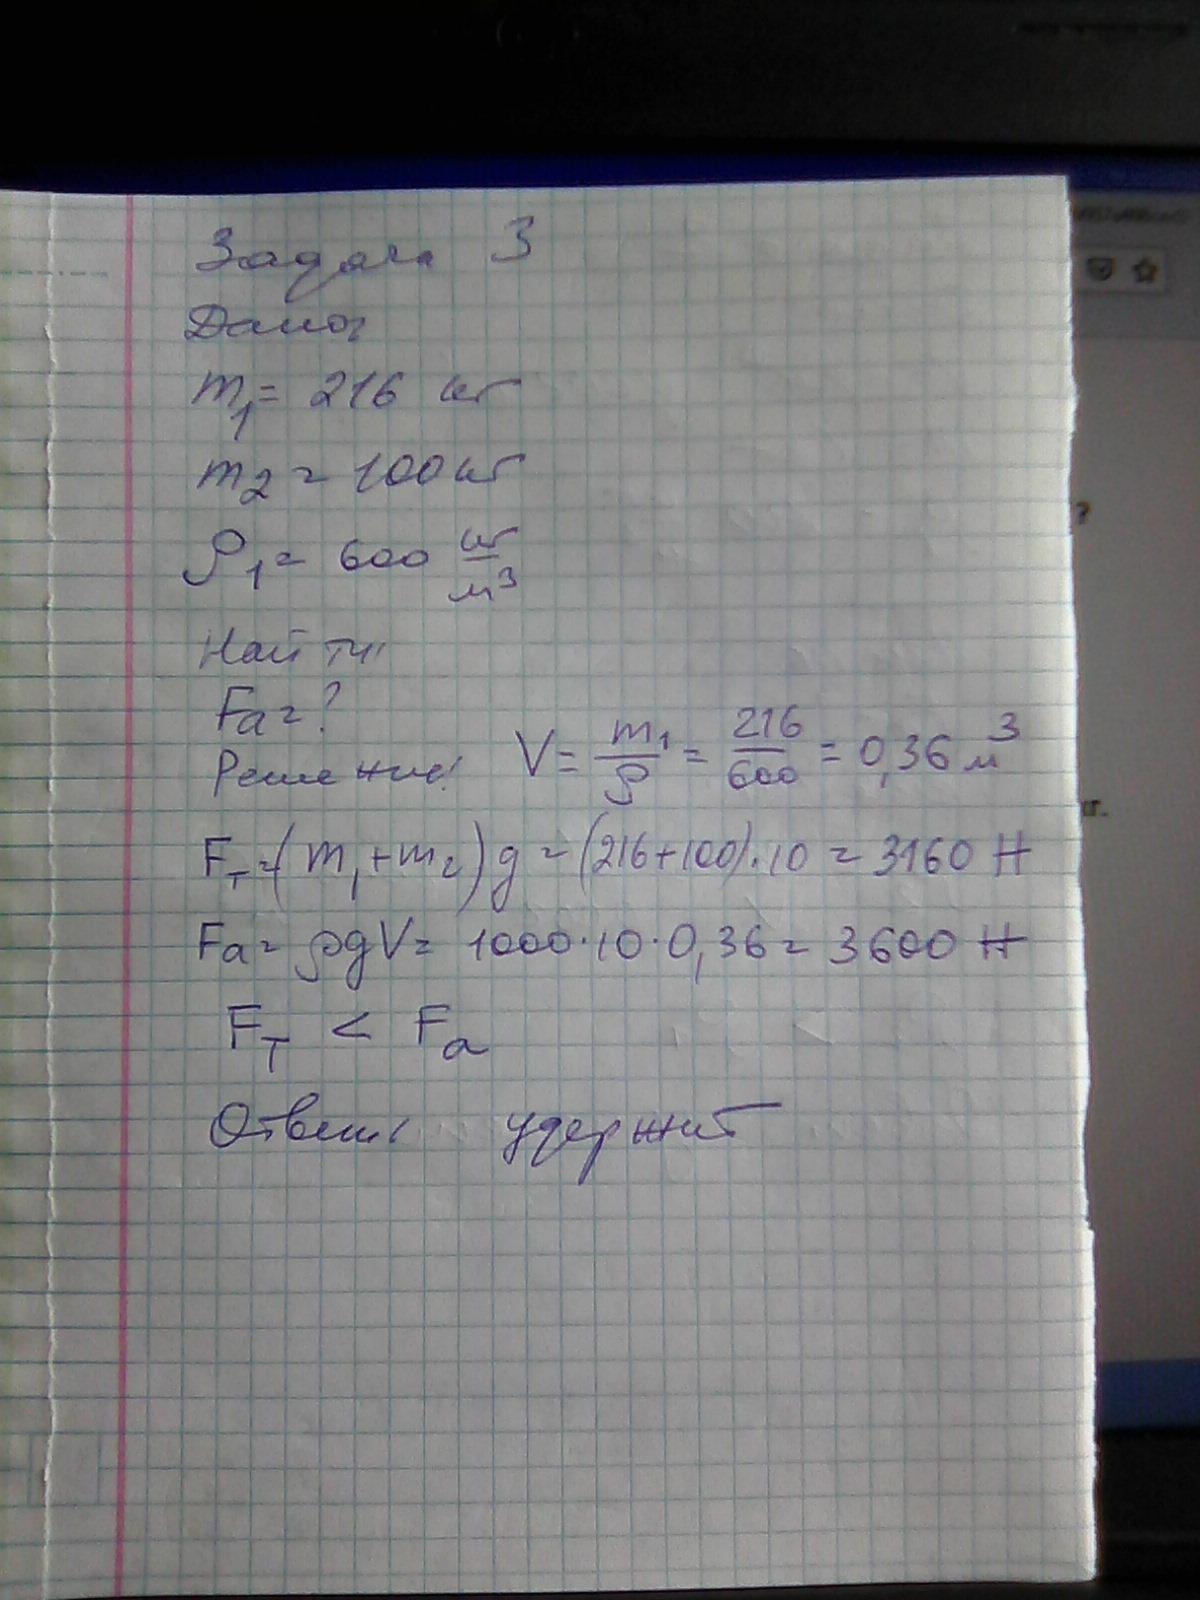 Задача 3
Дано:
m1 = 216 кг
m2 = 100 кг
ρ1 = 600 кг/м³
Найти:
Fa = ?
Решение: V = m1/ρ = 216/600 = 0,36 м³
Fт = (m1 + m2) g = (216+100)·10 = 3160 Н
Fa = ρgV = 1000·10·0,36 = 3600 Н
Fт < Fa
Ответ: удержит
?
кг.